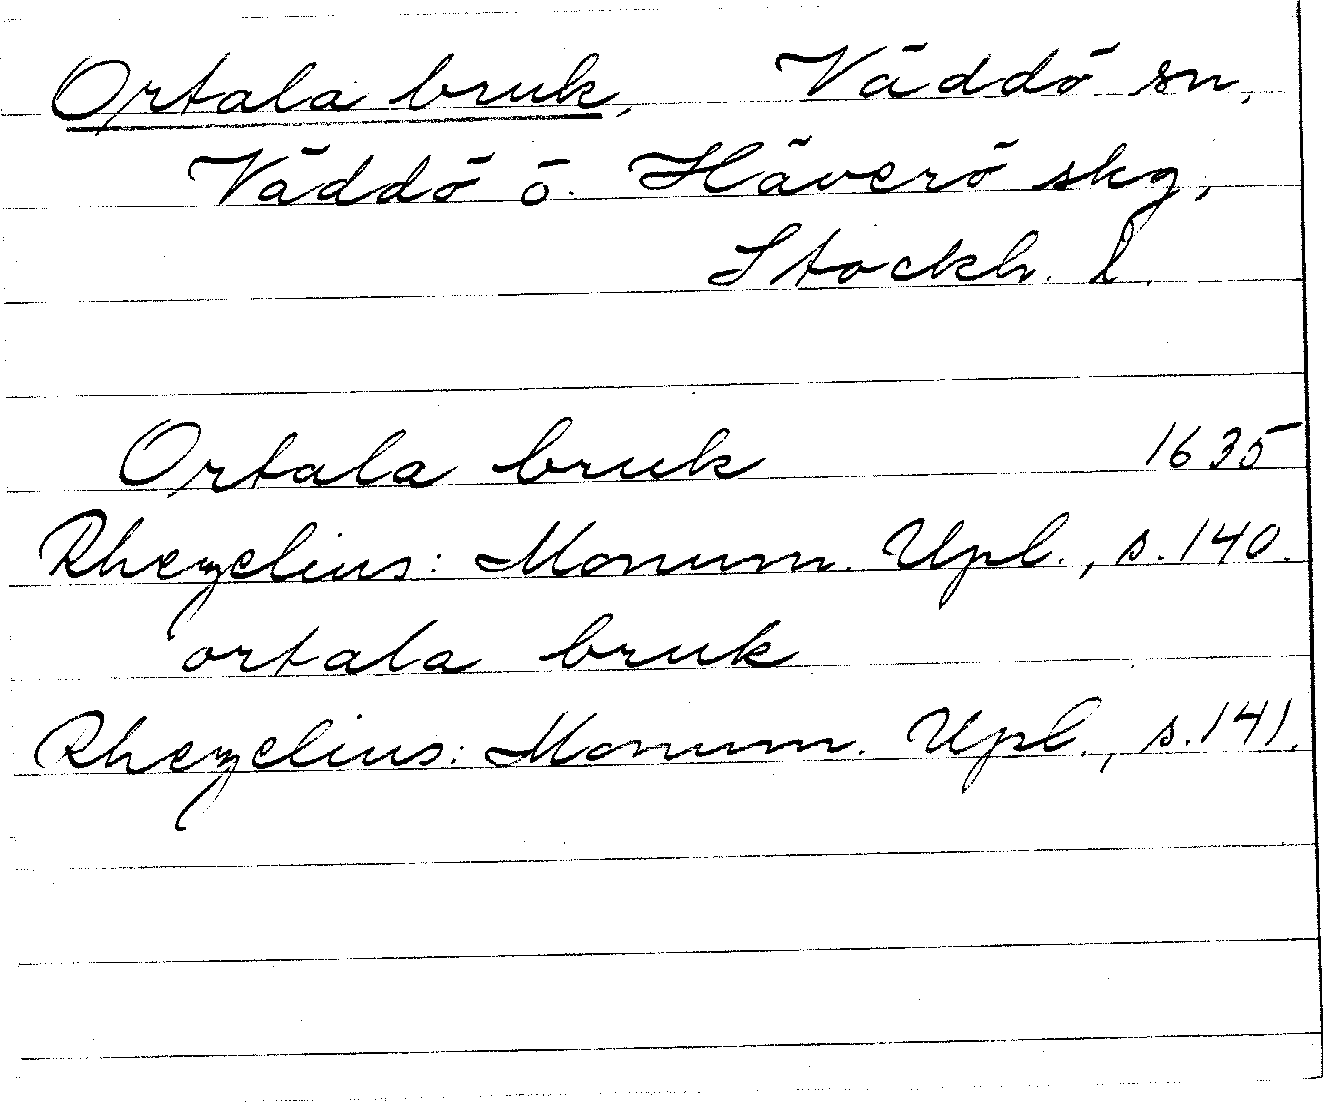 Ortala bruk, Väddö sn,
Väddö o. Häverö skg,
Stockh. l.
Ortala bruk 1635
Rhezelius: Monum. Upl., s. 140.
ortala bruk
Rhezelius: Monum. Upl., s. 141.